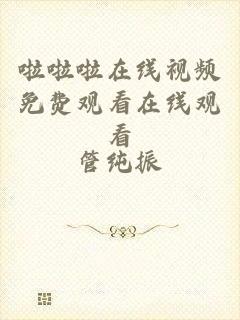 啦啦啦在线视频
免费观看在线观
看
管纯振